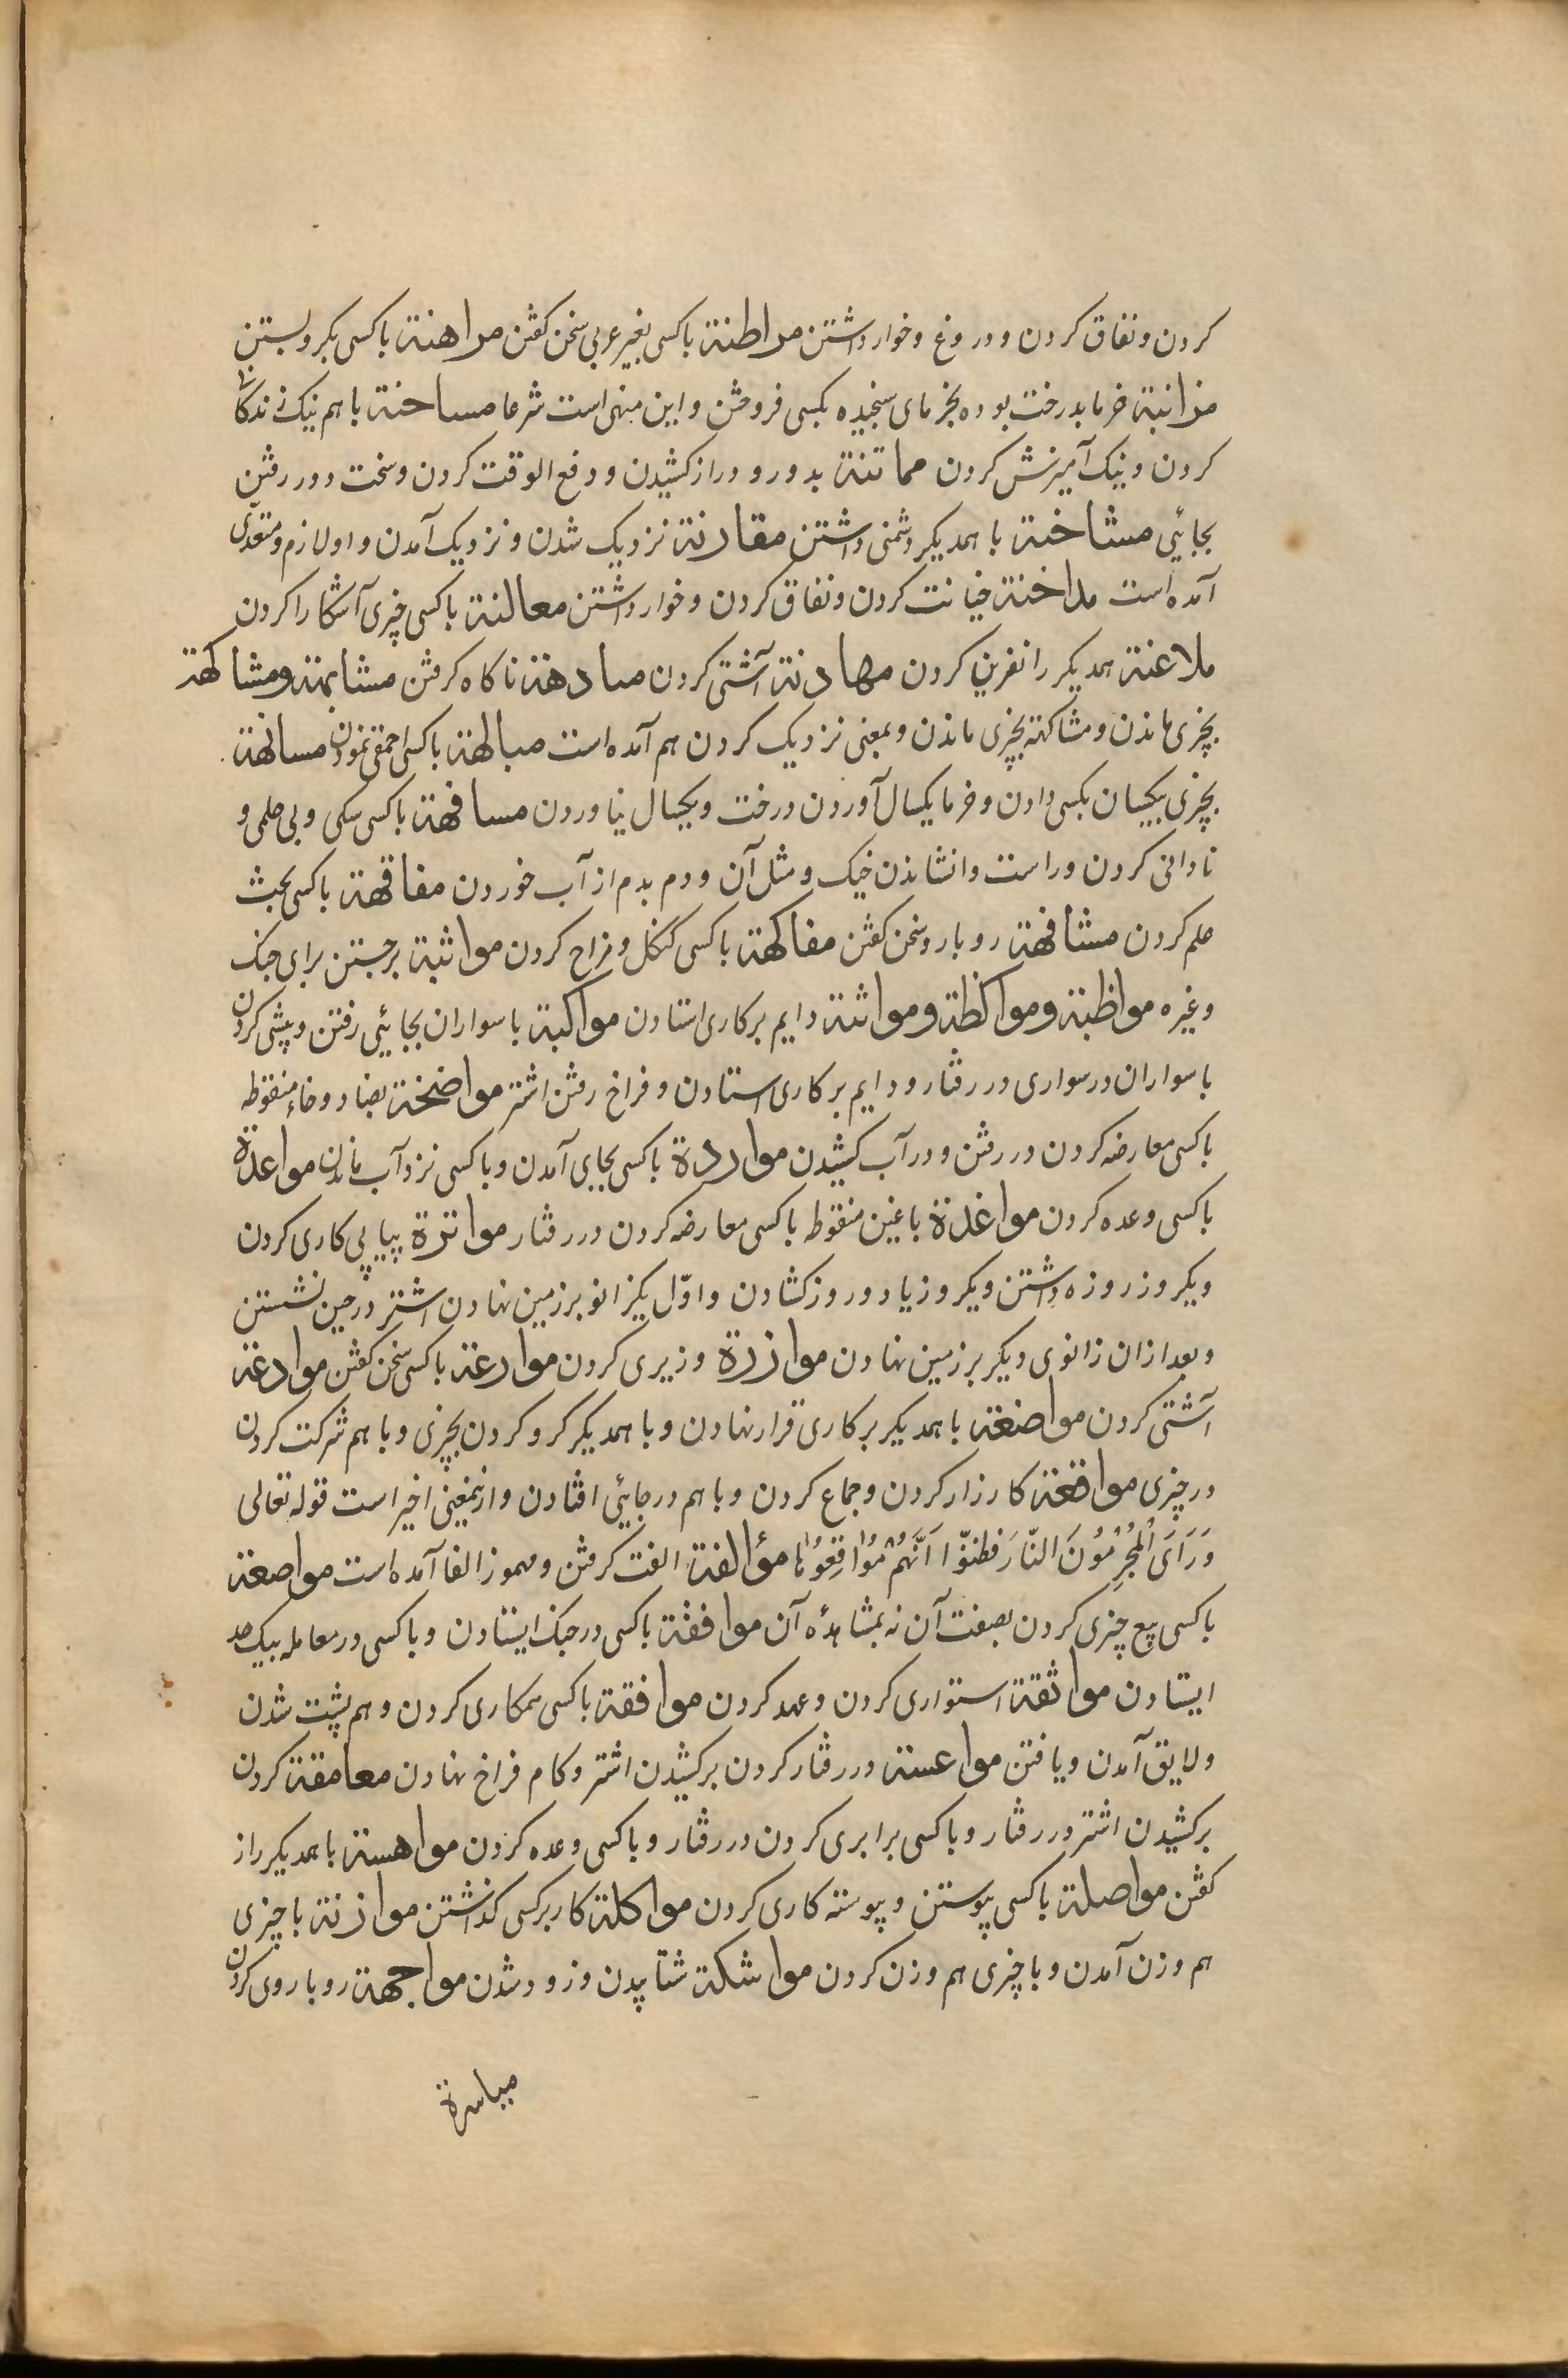 کردن و نفاق کردن و دروغ و خوار داشتن مراطنة باکسی بغیر عربی سخن کفتن مراهنة باکسی بکرو بستن
مزابنة خرما بدرخت بوده بخرمای سنجیده بکسی فروختن و این منهی است شرعا مساحنة باهم نیک زندکانی
کردن و نیک آمیزش کردن مماتنة بدور و دراز کشیدن و دفع الوقت کردن و سخت دور رفتن
بجائی مشاحنة با همدیکر دشمنی داشتن مقارنة نزدیک شدن و نزدیک آمدن و او لازم و متعدّی
آمده است مداخنة خیانت کردن و نفاق کردن و خوار داشتن معالنة باکسی چیزی آشکارا کردن
ملاعنة همدیکر را نفرین کردن مهادنة آشتی کردن مبادهة ناکاه کرفتن مشابهة و مشاکهة
بچیزی ماندن و مشاکهة بچیزی ماندن و بمعنی نزدیک کردن هم آمده است مبالهة باکسی احمقی نمودن مسانهة
بچیزی بیکسان بکسی دادن و خرما یکسال آوردن درخت و یکسال نیاوردن مسافهة باکسی سبکی و بی حلمی و
نادانی کردن و راست وانشاندن خیک و مثل آن و دم بدم از آب خوردن مفاقهة باکسی بحث
علم کردن مشافهة روبارو سخن کفتن مفاکهة باکسی کنکل و مزاح کردن مواثبة برجستن برای جنک
و غیره مواظبة و مواکظة و مواتنة دایم بر کاری استادن مواکبة با سواران بجائی رفتن و پیشی کردن
با سواران در سواری در رفتار و دایم بر کاری استادن و فراخ رفتن اشتر مواضخة بضاد و خاء منقوطه
باکسی معارضه کردن در رفتن و در آب کشیدن مواردة باکسی بجایی آمدن و باکسی نزد آب ماندن مواعدة
باکسی وعده کردن مواغدة باغین منقوطه باکسی معارضه کردن در رفتار مواترة پیاپی کاری کردن
و یکروز روزه داشتن و یکروز یا دو روز کشادن و اوّل یکزانو بر زمین نهادن اشتر در حین نشستن
و بعد ازان زانوی دیکر بر زمین نهادن موازرة وزیری کردن موارعة باکسی سخن کفتن موادعة
آشتی کردن مواضعة با همدیکر بر کاری قرار نهادن و با همدیکر کرو کردن بچیزی و باهم شرکت کردن
در چیزی مواقعة کارزار کردن و جماع کردن و باهم در جائی افتادن و ازینمعنئ اخیر است قوله تعالی
وَرَاَی الْمُجْرِمُونَ النّارَ فَظَنّوا اَنَّهُمْ مُوَاقِعُوهَا مؤالفة الفت کرفتن و مهموز الفا آمده است مواصفة
باکسی بیع چیزی کردن بصفت آن نه بمشاهدۀ آن مواقفة باکسی در جنک ایستادن و باکسی در معامله بیک حد
ایستادن مواثقة استواری کردن و عهد کردن موافقة باکسی همکاری کردن و هم پشت شدن
و لایق آمدن و یافتن مواعسة در رفتار کردن برکشیدن اشتر و کام فراخ نهادن معامقة کردن
برکشیدن اشتر در رفتار و باکسی برابری کردن در رفتار و باکسی وعده کردن مواهسة با همدیکر راز
کفتن مواصلة باکسی پیوستن و پیوسته کاری کردن مواکلة کار بر کسی کذاشتن موازنة با چیزی
هم وزن آمدن و با چیزی هم وزن کردن مواشکة شتاپیدن و زود شدن مواجهة روباروی کردن
میاسرة